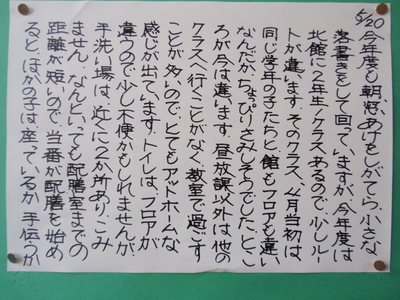 5/20
今年度も朝、窓あけをしがてら、小さな
落書きをして回っていますが、今年度は
北館に2年生1クラスあるので、少しルー
トが違います。そのクラス、4月当初は、
同じ学年の子たちと、館もフロアも違い
なんだか、ちょっぴりさみしそうでした。とこ
ろが今は違います。昼放課以外は他の
クラスへ行くことがなく、教室で過ごす
ことが多いので、とてもアットホームな
感じが出ています。トイレは、フロアが
違うので少し不便かもしれませんが、
手洗い場は、近くに2か所あり、こみ
ません。なんといっても配膳室までの
距離が短いので、当番が配膳を始め
ると、ほかの子は座っているか、手伝うか